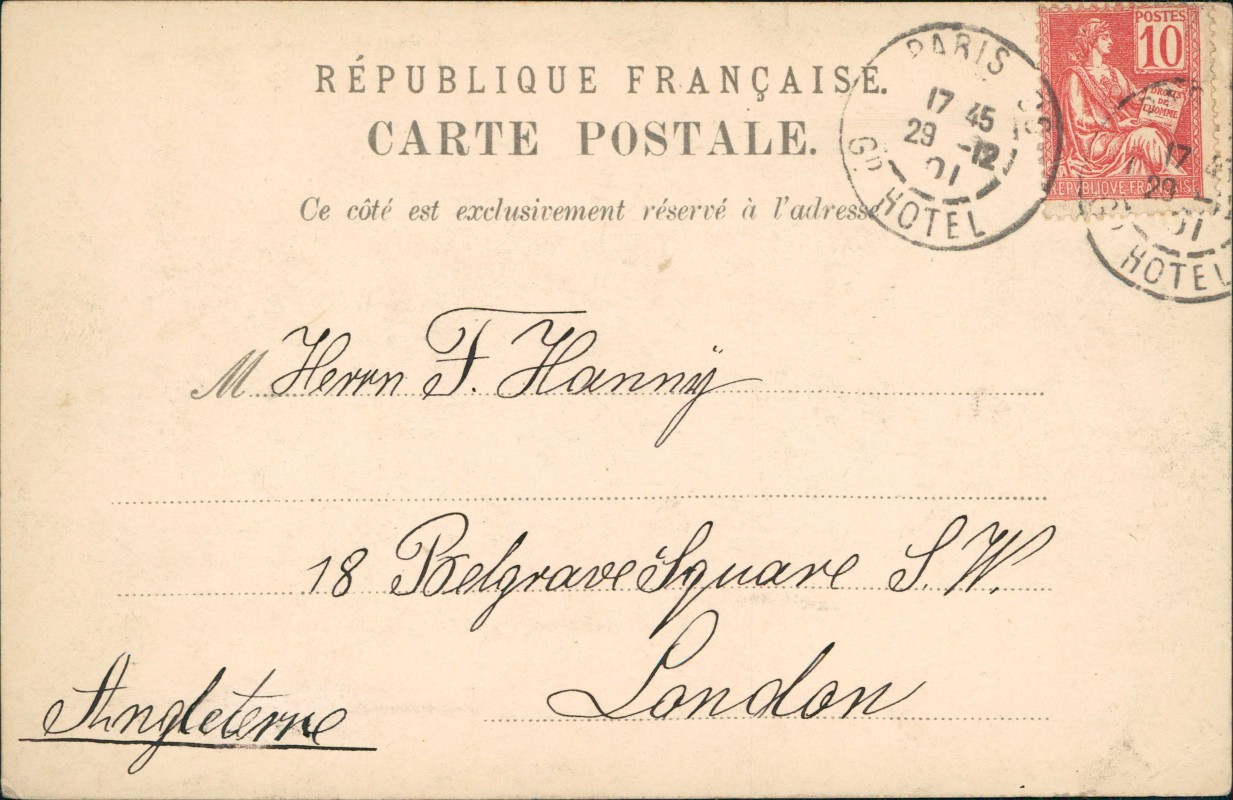 RÉPUBLIQUE FRANÇAISE.
CARTE POSTALE.
Ce côté est exclusivement réservé à l'adresse
PARIS
17 45
29 -12
01
GD HOTEL
POSTES
10
DROITS
DE
L'HOMME
REPUBLIQUE FRANÇAISE
17 45
29
01
HOTEL
M Herrn F. Hannÿ
18 Belgrave Square S. W.
London
Angleterre